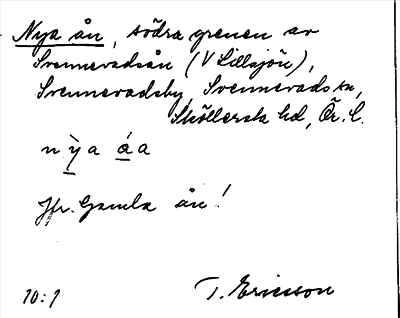 Nya ån, södra grenen av
Svennevadsån (V Lillsjön),
Svennevadsby, Svennevads sn,
Sköllersta hd, Ör. l.
n ỳ̠ a á̠ a
Jfr. Gamla ån!
10:1
T. Ericsson